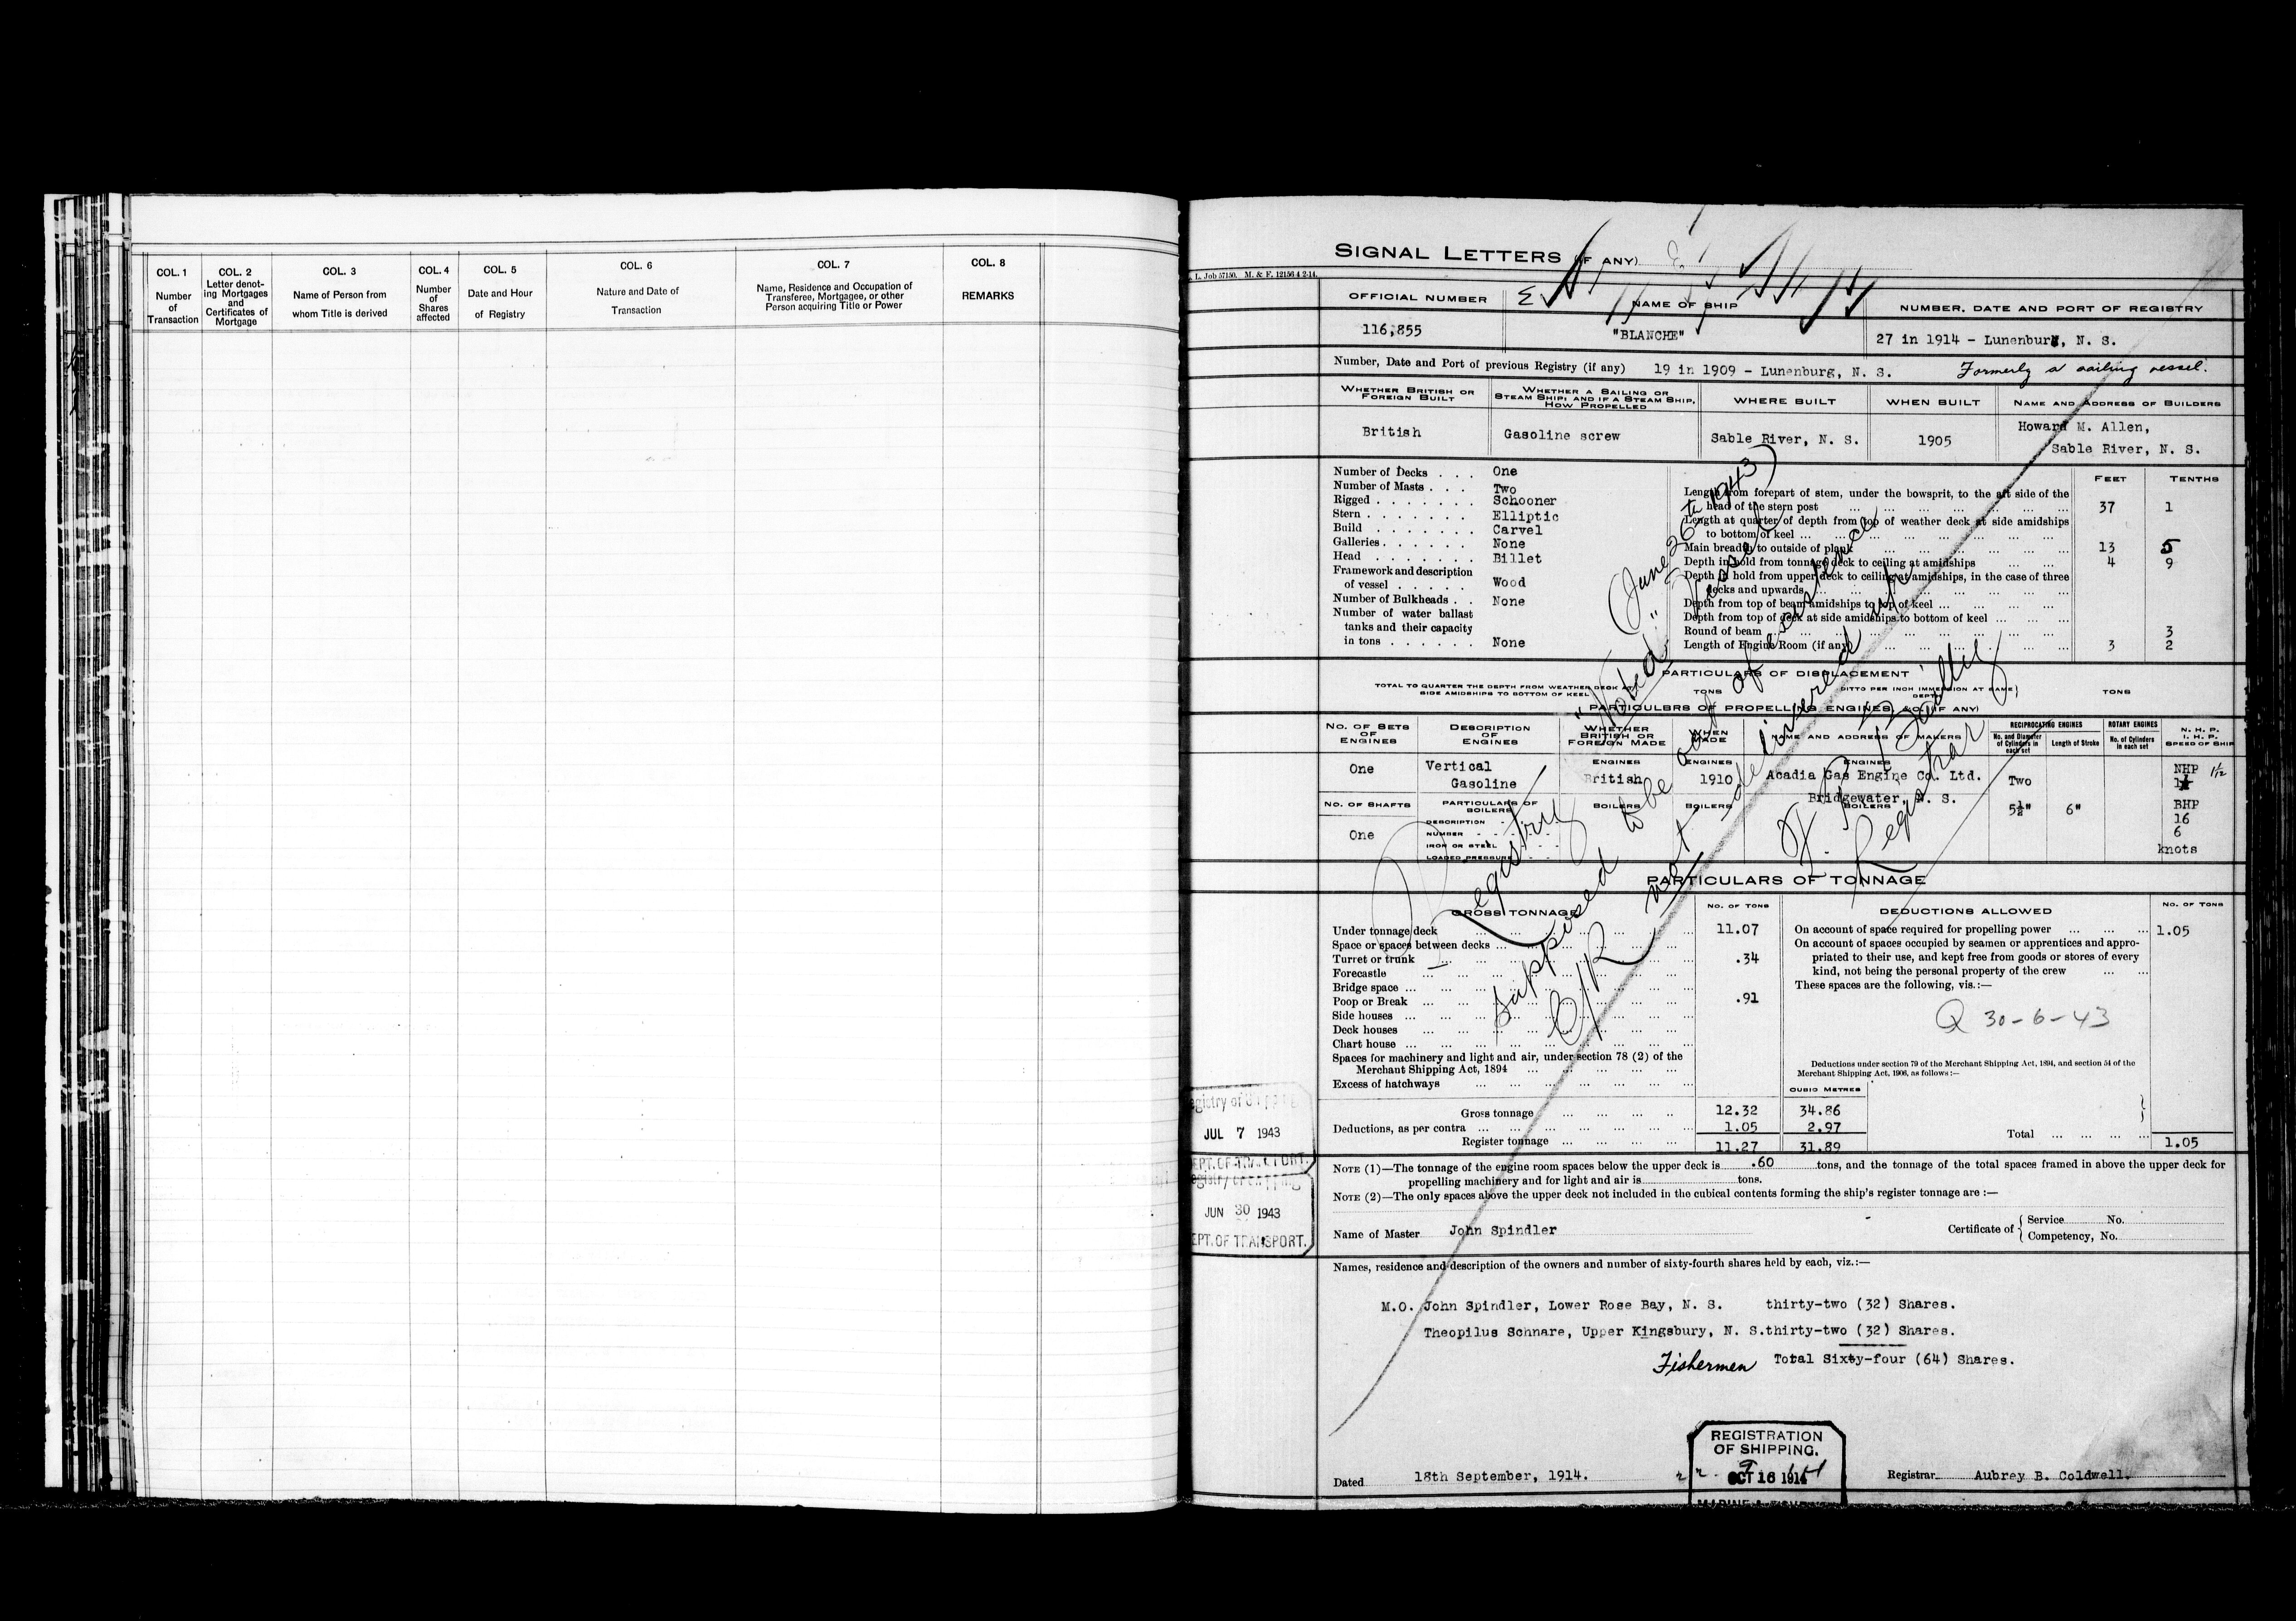 COL. 1
Number
of
Transaction
COL. 2
Letter denot-
ing Mortgages
and
Certificates of
Mortgage
COL. 3
Name of Person from
whom Title is derived
COL. 4
Number
of
Shares
affected
COL. 5
Date and Hour
of Registry
COL. 6
Nature and Date of
Transaction
COL. 7
Name, Residence and Occupation of
Transferee, Mortgagee, or other
Person acquiring Title or Power
COL. 8
REMARKS
SIGNAL LETTERS (IF ANY)
L. Job 57150. M. & F. 12156 4 2-14.
OFFICIAL NUMBER
NAME OF SHIP
NUMBER, DATE AND PORT OF REGISTRY
116,855
"BLANCHE"
27 in 1914 - Lunenburg, N. S.
Number, Date and Port of previous Registry (if any) 19 in 1909 - Lunenburg, N. S. Formerly a sailing vessel.
WHETHER BRITISH OR
FOREIGN BUILT
WHETHER A SAILING OR
STEAM SHIP; AND IF A STEAM SHIP,
HOW PROPELLED
WHERE BUILT
WHEN BUILT
NAME AND ADDRESS OF BUILDERS
British
Gasoline screw
Sable River, N. S.
1905
Howard M. Allen,
Sable River, N. S.
Number of Decks . . . One
Number of Masts . . . Two
Rigged . . . . . . . Schooner
Stern . . . . . . . Elliptic
Build . . . . . . . Carvel
Galleries . . . . . . None
Head . . . . . . . Billet
Framework and description
of vessel . . . . . Wood
Number of Bulkheads . . None
Number of water ballast
tanks and their capacity
in tons . . . . . . None
FEET TENTHS
Length from forepart of stem, under the bowsprit, to the aft side of the
head of the stern post 37 1
Length at quarter of depth from top of weather deck at side amidships
to bottom of keel
Main breadth to outside of plank 13 5
Depth in hold from tonnage deck to ceiling at amidships 4 9
Depth in hold from upper deck to ceiling at amidships, in the case of three
decks and upwards
Depth from top of beam amidships to top of keel
Depth from top of deck at side amidships to bottom of keel
Round of beam 3
Length of Engine Room (if any) 3 2
PARTICULARS OF DISPLACEMENT
TOTAL TO QUARTER THE DEPTH FROM WEATHER DECK AT
SIDE AMIDSHIPS TO BOTTOM OF KEEL
TONS
DITTO PER INCH IMMERSION AT SAME
DEPTH
TONS
PARTICULBRS OF PROPELLING ENGINES, &C. (IF ANY)
NO. OF SETS
OF
ENGINES
DESCRIPTION
OF
ENGINES
WHETHER
BRITISH OR
FOREIGN MADE
WHEN
MADE
NAME AND ADDRESS OF MAKERS
RECIPROCATING ENGINES
No. and Diameter
of Cylinders in
each set
Length of Stroke
ROTARY ENGINES
No. of Cylinders
in each set
N. H. P.
I. H. P.
SPEED OF SHIP
One
Vertical
Gasoline
ENGINES
British
ENGINES
1910
ENGINES
Acadia Gas Engine Co. Ltd.
Bridgewater, N. S.
Two
5½"
6"
NHP 1 1/12
BHP
16
6
knots
NO. OF SHAFTS
One
PARTICULARS OF
BOILERS
DESCRIPTION
NUMBER
IRON OR STEEL
LOADED PRESSURE
BOILERS
BOILERS
BOILERS
PARTICULARS OF TONNAGE
GROSS TONNAGE
NO. OF TONS
Under tonnage deck 11.07
Space or spaces between decks
Turret or trunk .34
Forecastle
Bridge space
Poop or Break .91
Side houses
Deck houses
Chart house
Spaces for machinery and light and air, under section 78 (2) of the
Merchant Shipping Act, 1894
Excess of hatchways
CUBIC METRES
Gross tonnage 12.32 34.86
Deductions, as per contra 1.05 2.97
Register tonnage 11.27 31.89
DEDUCTIONS ALLOWED
NO. OF TONS
On account of space required for propelling power 1.05
On account of spaces occupied by seamen or apprentices and appro-
priated to their use, and kept free from goods or stores of every
kind, not being the personal property of the crew
These spaces are the following, vis.:—
Q 30-6-43
Deductions under section 79 of the Merchant Shipping Act, 1894, and section 54 of the
Merchant Shipping Act, 1906, as follows:—
Total 1.05
"Noted" (June 26th 1943)
Registry Vessel
supposed to be out of existence
C/R not delivered up
Registrar
JUL 7 1943
DEPT. OF TRANSPORT.
JUN 30 1943
DEPT. OF TRANSPORT.
NOTE (1)—The tonnage of the engine room spaces below the upper deck is .60 tons, and the tonnage of the total spaces framed in above the upper deck for
propelling machinery and for light and air is tons.
NOTE (2)—The only spaces above the upper deck not included in the cubical contents forming the ship's register tonnage are :—
Name of Master John Spindler
Certificate of { Service No.
Competency, No.
Names, residence and description of the owners and number of sixty-fourth shares held by each, viz.:—
M.O. John Spindler, Lower Rose Bay, N. S. thirty-two (32) Shares.
Theopilus Schnare, Upper Kingsbury, N. S. thirty-two (32) Shares.
Fishermen Total Sixty-four (64) Shares.
REGISTRATION
OF SHIPPING.
OCT 16 1914
Dated 18th September, 1914.
Registrar Aubrey B. Coldwell.